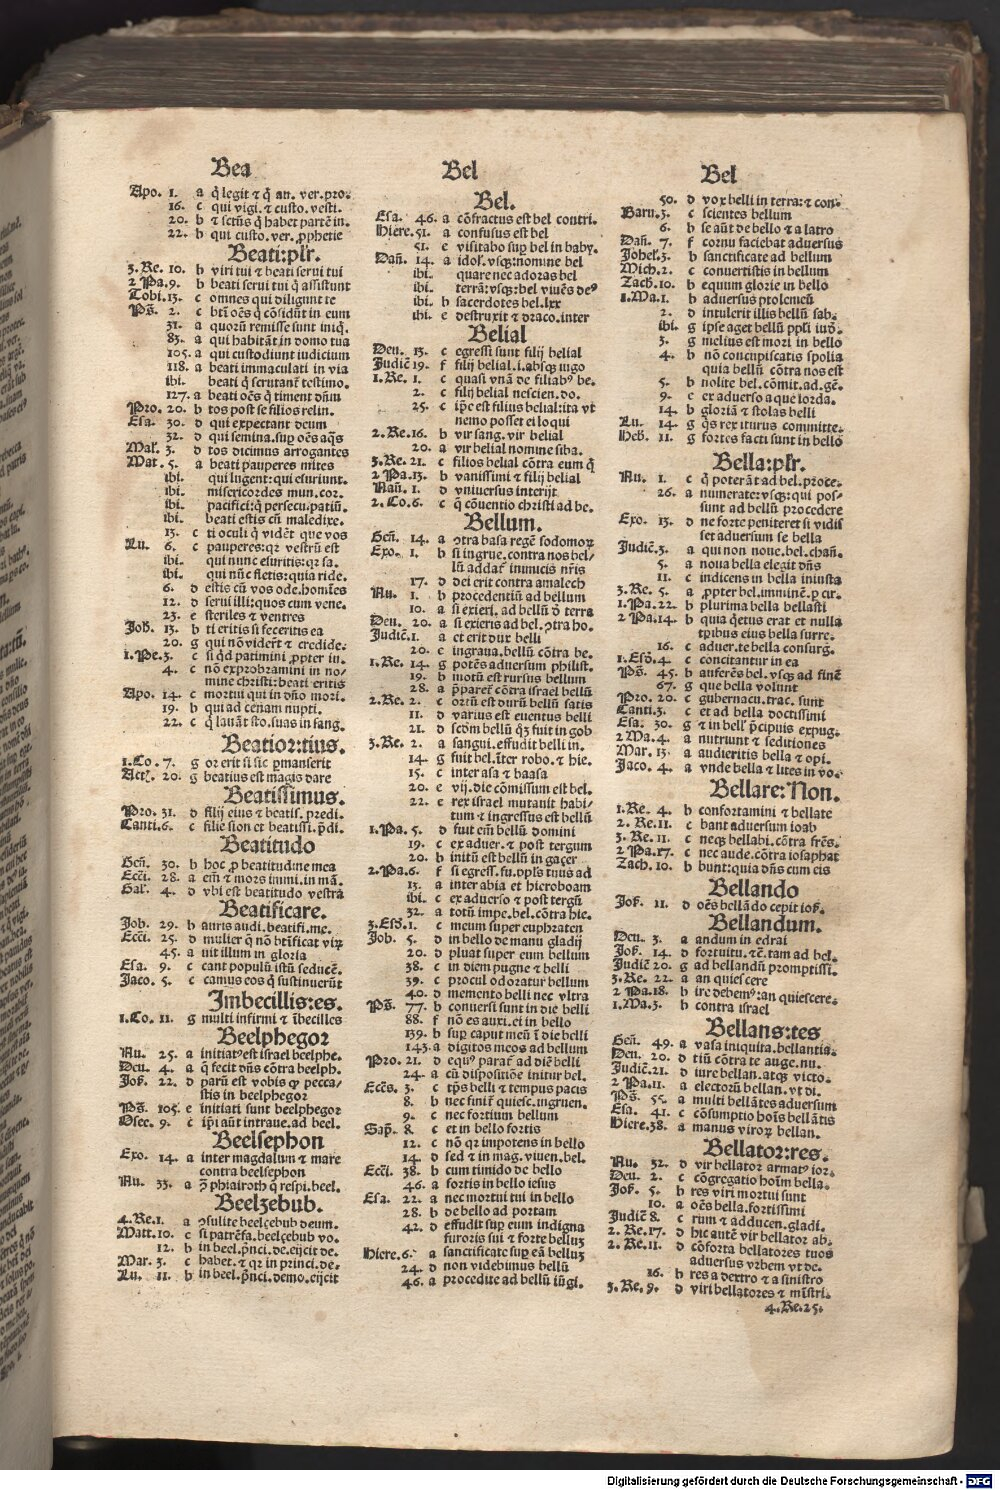 Bea
Apo. 1. a q̄ legit ⁊ q̄ an. ver. pro.
16. c qui vigi. ⁊ custo. vesti.
20. b ⁊ sctūs q̄ habet partē in.
22. b qui custo. ver. ꝓphetie
Beati:plr̄.
3. Re. 10. b viri tui ⁊ beati serui tui
2 Pa. 9. b beati serui tui q̄ assistunt
Tobi. 13. c omnes qui diligunt te
Ps̄. 2. c bt̄i oēs q̄ cōsidūt in eum
31. a quorū remisse sunt iniq̄.
83. a qui habitāt in domo tua
105. a qui custodiunt iudicium
118. a beati immaculati in via
ibi. beati q̄ scrutant̄ testimo.
127. a beati oēs q̄ timent dn̄m
Pro. 20. b tos post se filios relin.
Esa. 30. d qui expectant deum
32. d qui semina. sup oēs aq̄s
Mal̄. 3. d tos dicimus arrogantes
Mat. 5. a beati pauperes mites
ibi. qui lugent: qui esuriunt.
ibi. misericordes mun. cor.
ibi. pacifici: q̄ persecu. patiū.
ibi. beati estis cū maledixe.
13. c ti oculi q̄ vidēt que vos
Lu. 6. c pauperes: qꝛ vestrū est
ibi. qui nunc esuritis: qꝛ sa.
ibi. qui nūc fletis: quia ride.
6. d estis cū vos ode. hoīntes
12. d serui illi: quos cum vene.
23. e steriles ⁊ ventres
Joh̄. 13. b ti eritis si feceritis ea
20. g qui nō viderūt ⁊ credide.
1. Pe. 3. c si qd̄ patimini ꝓpter iu.
4. c nō exprobramini in no/
mine christi: beati eritis
Apo. 14. c mortui qui in dn̄o mori.
19. b qui ad cenam nupti.
22. c q̄ lauāt sto. suas in sang.
Beatior:tius.
1. Co. 7. g or erit si sic ꝑmanserit
Act̄. 20. g beatius est magis dare
Beatissimus.
Pro. 31. d filij eius ⁊ beatis. predi.
Canti. 6. c filie sion et beatissi. p̄di.
Beatitudo
Gen̄. 30. b hoc ꝓ beatitudine mea
Ecci. 28. a em̄ ⁊ mors immi. in mā.
Gal. 4. d vbi est beatitudo vestra
Beatificare.
Job. 29. b auris audi. beatifi. me.
Ecci. 25. d mulier q̄ nō bt̄ificat virꝫ
45. a uit illum in gloria
Esa. 9. c cant populū istū seducē.
Jaco. 5. c camus eos q̄ sustinuerūt
Imbecillis:es.
1. Co. 11. g multi infirmi ⁊ ībecilles
Beelphegor
Nu. 25. a initiatꝰ est israel beelphe.
Deu. 4. a q̄ fecit dn̄s cōtra beelph.
Jos. 22. d parū est vobis ꝙ pecca/
stis in beelphegor
Ps̄. 105. e initiati sunt beelphegor
Osee. 9. c ip̄i aūt intraue. ad beel.
Beelsephon
Exo. 14. a inter magdalum ⁊ mare
contra beelsephon
Nu. 33. a p̄ phiairoth q̄ respi. beel.
Beelzebub.
4. Re. 1. a ꝯsulite beelçebub deum.
Matt. 10. c si patrēfa. beelçebub vo.
12. b in beel. p̄nci. de. eijcit de.
Mar. 3. c habet. ⁊ qꝛ in princi. de.
Lu. 11. b in beel. p̄nci. demo. eijcit
Bel
Bel.
Esa. 46. a cōfractus est bel contri.
Hiere. 51. a confusus est bel
51. e visitabo sup bel in baby.
Dan̄. 14. a idol. vsqꝫ: nomine bel
ibi. quare nec adoras bel
ibi. terrā: vsqꝫ: bel viuēs deꝰ
ibi. b sacerdotes bel. lxx
ibi. e destruxit ⁊ draco. inter
Belial
Deu. 13. c egressi sunt filij belial
Judic̄ 19. f filij belial. i. absqꝫ iugo
1. Re. 1. c quasi vnā de filiabꝰ be.
2. c filij belial nescien. do.
25. c ip̄e est filius belial: ita vt
nemo posset ei loqui
2. Re. 16. b vir sang. vir belial
20. a vir belial nomine siba.
3. Re. 21. c filios belial cōtra eum q̄
2 Pa. 13. b vanissimi ⁊ filij belial
Naū. 1. d vniuersus interijt
2. Co. 6. c q̄ cōuentio christi ad be.
Bellum.
Gen̄. 14. a ꝯtra basa regē sodomoꝝ
Exo. 1. b si ingrue. contra nos bel/
lū addat̄ inimicis nr̄is
17. d dei erit contra amalech
Nu. 1. b procedentiū ad bellum
10. a si exieri. ad bellū d̄ terra
Deu. 20. a si exieris ad bel. ꝯtra ho.
Judic̄. 1. a et erit dux belli
20. c ingraua. bellū cōtra be.
1. Re. 14. g potēs aduersum philist.
19. b motū est rursus bellum
28. a p̄paret̄ cōtra israel bellū
2. Re. 2. c ortū est durū bellū satis
11. d varius est euentus belli
21. d scd̄m bellū qꝫ fuit in gob
3. Re. 2. a sangui. effudit belli in.
14. g fuit bel. īter robo. ⁊ hie.
15. c inter asa ⁊ baasa
20. e vij. die cōmissum est bel.
22. c rex israel mutauit habi/
tum ⁊ ingressus est bellū
1. Pa. 5. d fuit em̄ bellū domini
19. c ex aduer. ⁊ post tergum
20. b initū est bellū in gaçer
2. Pa. 6. f si egress. fu. pplꝰs tuus ad
13. a inter abia et hieroboam
ibi. c ex aduerso ⁊ post tergū
32. a totū impe. bel. cōtra hie.
3. Esd̄. 1. c meum super euphraten
Job. 5. d in bello de manu gladij
20. d pluat super eum bellum
38. c in diem pugne ⁊ belli
39. c procul odoratur bellum
40. d memento belli nec vltra
Ps̄. 77. b conuersi sunt in die belli
88. f nō es auxi. ei in bello
139. b sup caput meū ī die belli
143. a digitos meos ad bellum
Pro. 21. d equꝰ parat̄ ad diē belli
24. a cū dispositiōe initur bel.
Eccēs. 3. c tp̄s belli ⁊ tempus pacis
8. b nec finit̄ quiesc. ingruen.
9. c nec fortium bellum
Sap̄. 8. c et in bello fortis
12. c nō qꝛ impotens in bello
14. d sed ⁊ in mag. viuen. bel.
Ecci. 38. b cum timido de bello
46. a fortis in bello iesus
Esa. 22. a nec mortui tui in bello
28. b de bello ad portam
42. d effudit sup eum indigna
furoris sui ⁊ forte belluꝫ
Hiere. 6. a sanctificate sup eā bellū
24. d non videbimus bellū
46. a procedite ad bellū iūgi.
Bel
50. d vox belli in terra: ⁊ con.
Baru. 3. c scientes bellum
6. b se aūt de bello ⁊ a latro
Dan̄. 7. f cornu faciebat aduersus
Johel. 3. b sanctificate ad bellum
Mich. 2. c conuertistis in bellum
Zach. 10. b equum glorie in bello
1. Ma. 1. b aduersus ptolemeū
2. d intulerit illis bellū sab.
ibi. g ipse aget bellū ppli iud̄.
3. g melius est mori in bello
4. b nō concupiscatis spolia
quia bellū cōtra nos est
5. b nolite bel. cōmit. ad gē.
9. c ex aduerso aque iorda.
14. b gloriā ⁊ stolas belli
Lu. 14. g q̄s rex iturus committe.
Heb. 11. g fortes facti sunt in bello
Bella:plr̄.
Nu. 1. c q̄ poterāt ad bel. proce.
26. a numerate: vsqꝫ: qui pos/
sunt ad bellū procedere
Exo. 13. d ne forte peniteret si vidis
set aduersum se bella
Judic̄. 3. a qui non noue. bel. chan̄.
5. a noua bella elegit dn̄s
11. c indicens in bella iniusta
3. Re. 5. a ꝓpter bel. imminē. ꝑ cir.
1. Pa. 22. b plurima bella bellasti
2 Pa. 14. b quia q̄etus erat et nulla
tp̄ribus eius bella surre.
16. c aduer. te bella consurg.
1. Esd̄. 4. c concitantur in ea
Ps̄. 45. b auferēs bel. vsqꝫ ad finē
67. g que bella volunt
Pro. 20. c gubernacu. trac. sunt
Canti. 3. c et ad bella doctissimi
Esa. 30. g ⁊ in bell̄ p̄cipuis expug.
2 Ma. 4. a nutriunt ⁊ seditiones
Mar. 13. a audieritis bella ⁊ opi.
Jaco. 4. a vnde bella ⁊ lites in vo.
Bellare:Non.
1. Re. 4. b confortamini ⁊ bellate
2. Re. 11. c bant aduersum ioab
3. Re. 11. c neqꝫ bellabi. cōtra frēs.
2 Pa. 17. c nec aude. cōtra iosaphat
Zach. 10. b bunt: quia dn̄s cum eis
Bellando
Jos. 11. d oēs bellādo cepit ios.
Bellandum.
Deu. 3. a andum in edrai
Jos. 14. d fortitu. ⁊c̄. tam ad bel.
Judic̄ 20. g ad bellandū promptissi.
3. Re. 22. a an quiescere
2 Pa. 18. b ire debemꝰ: an quiescere.
1. Ma. 3. b contra israel
Bellans:tes
Gen̄. 49. a vasa iniquita. bellantia.
Deu. 20. d tiū cōtra te auge. nu.
Judic̄. 21. d iure bellan. atqꝫ victo.
2 Pa. 11. a electorū bellan. vt di.
Ps̄. 55. a multi bellātes aduersum
Esa. 41. c cōsumptio hoīs bellātis
Hiere. 38. a manus viroꝝ bellan.
Bellator:res.
Nu. 32. d vir bellator armatꝰ ior.
Deu. 2. c cōgregatio hoīm bella.
Jos. 5. b res viri mortui sunt
10. a oēs bella. fortissimi
Judic̄ 8. c rum ⁊ adducen. gladi.
2. Re. 17. d hic autē vir bellator ab.
2. Re. 11. d cōforta bellatores tuos
aduersus vrbem vt de.
16. b res a dextro ⁊ a sinistro
3. Re. 9. d viri bellatores ⁊ mīstri.
4. Re. 25.
Digitalisierung gefördert durch die Deutsche Forschungsgemeinschaft - DFG